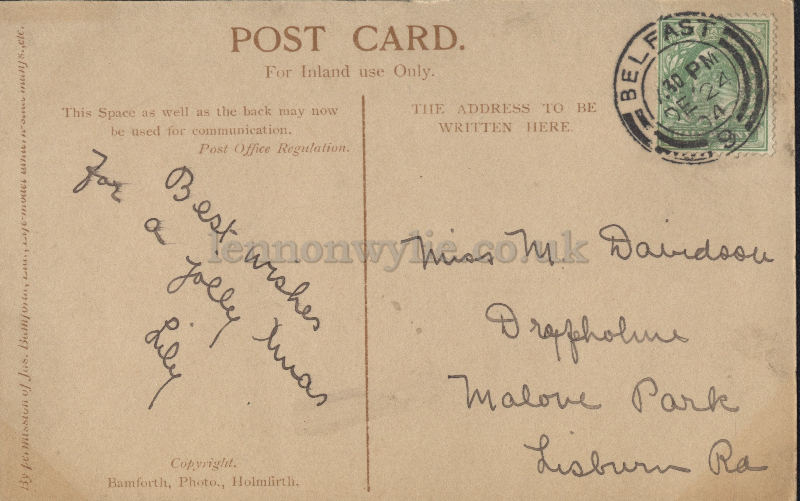 POST CARD.
For Inland use Only.
This Space as well as the back may now
be used for communication.
Post Office Regulation.
THE ADDRESS TO BE
WRITTEN HERE.
BELFAST
30 PM
DE 24
04
Best wishes
For a Jolly Xmas
Lily
Miss M. Davidson
Drapholme
Malone Park
Lisburn Rd
lennonwylie.co.uk
Copyright.
Bamforth, Photo., Holmfirth.
By permission of Jas. Bamforth,